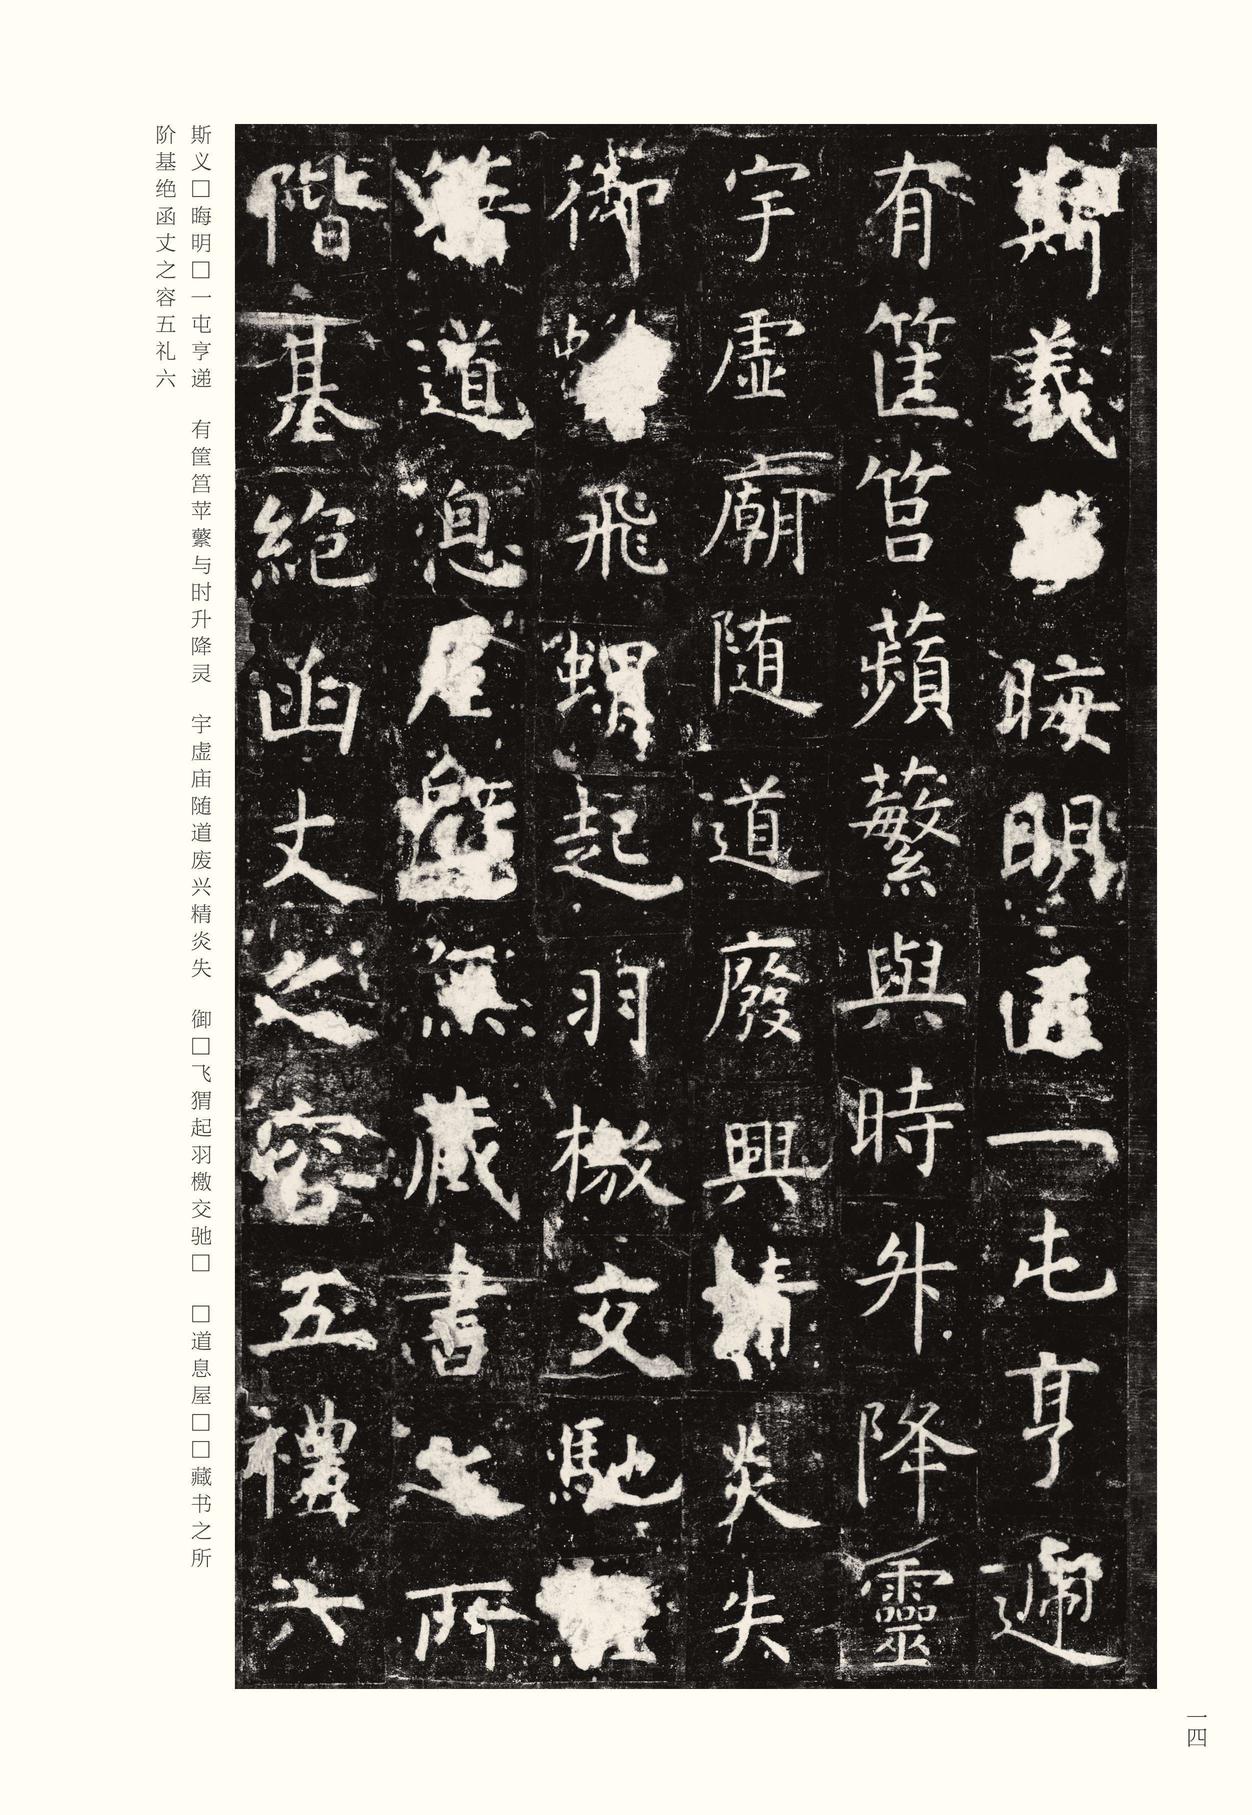 斯義晦明一屯亨遞
有筐筥蘋蘩與時升降靈
宇虛廟随道廢興精炎失
御飛蝟起羽檄交馳
道息屋無藏書之所
階基絶函丈之容五禮六
斯义□晦明□一屯亨递　有筐筥苹蘩与时升降灵　宇虚庙随道废兴精炎失　御□飞猬起羽檄交驰□　□道息屋□□藏书之所
阶基绝函丈之容五礼六
一四